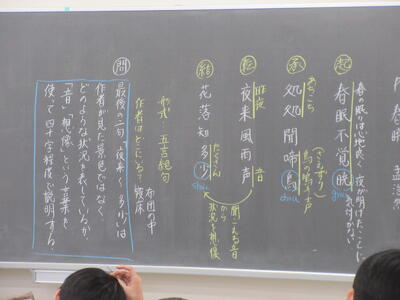 起
春の眠りは心地良く、夜が明けたことに
気付かない
春眠不覚暁
gyou
承
あちこち
処処聞啼鳥
さえずり
鳥の鳴き声
chou
転
昨夜
夜来風雨声
音
聞こえる音
から
状況を想像
結
花落知多少
たくさん
shou
形式 五言絶句
作者はどこにいる?
布団の中
寝床
問
最後の二句「夜来〜多少」は
作者が見た景色ではなく、
どのような状況を表しているか、
「音」「想像」という言葉を
使って四十字程度で説明する。